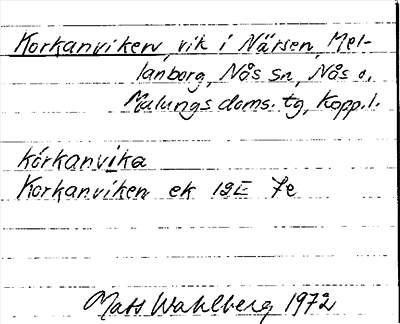 Korkanviken, vik i Närsen, Mel-
lanborg, Nås sn, Nås o.
Malungs doms. tg, Kopp. l.
kórkanvika
Korkanviken ek 13E 7e
Mats Wahlberg 1972